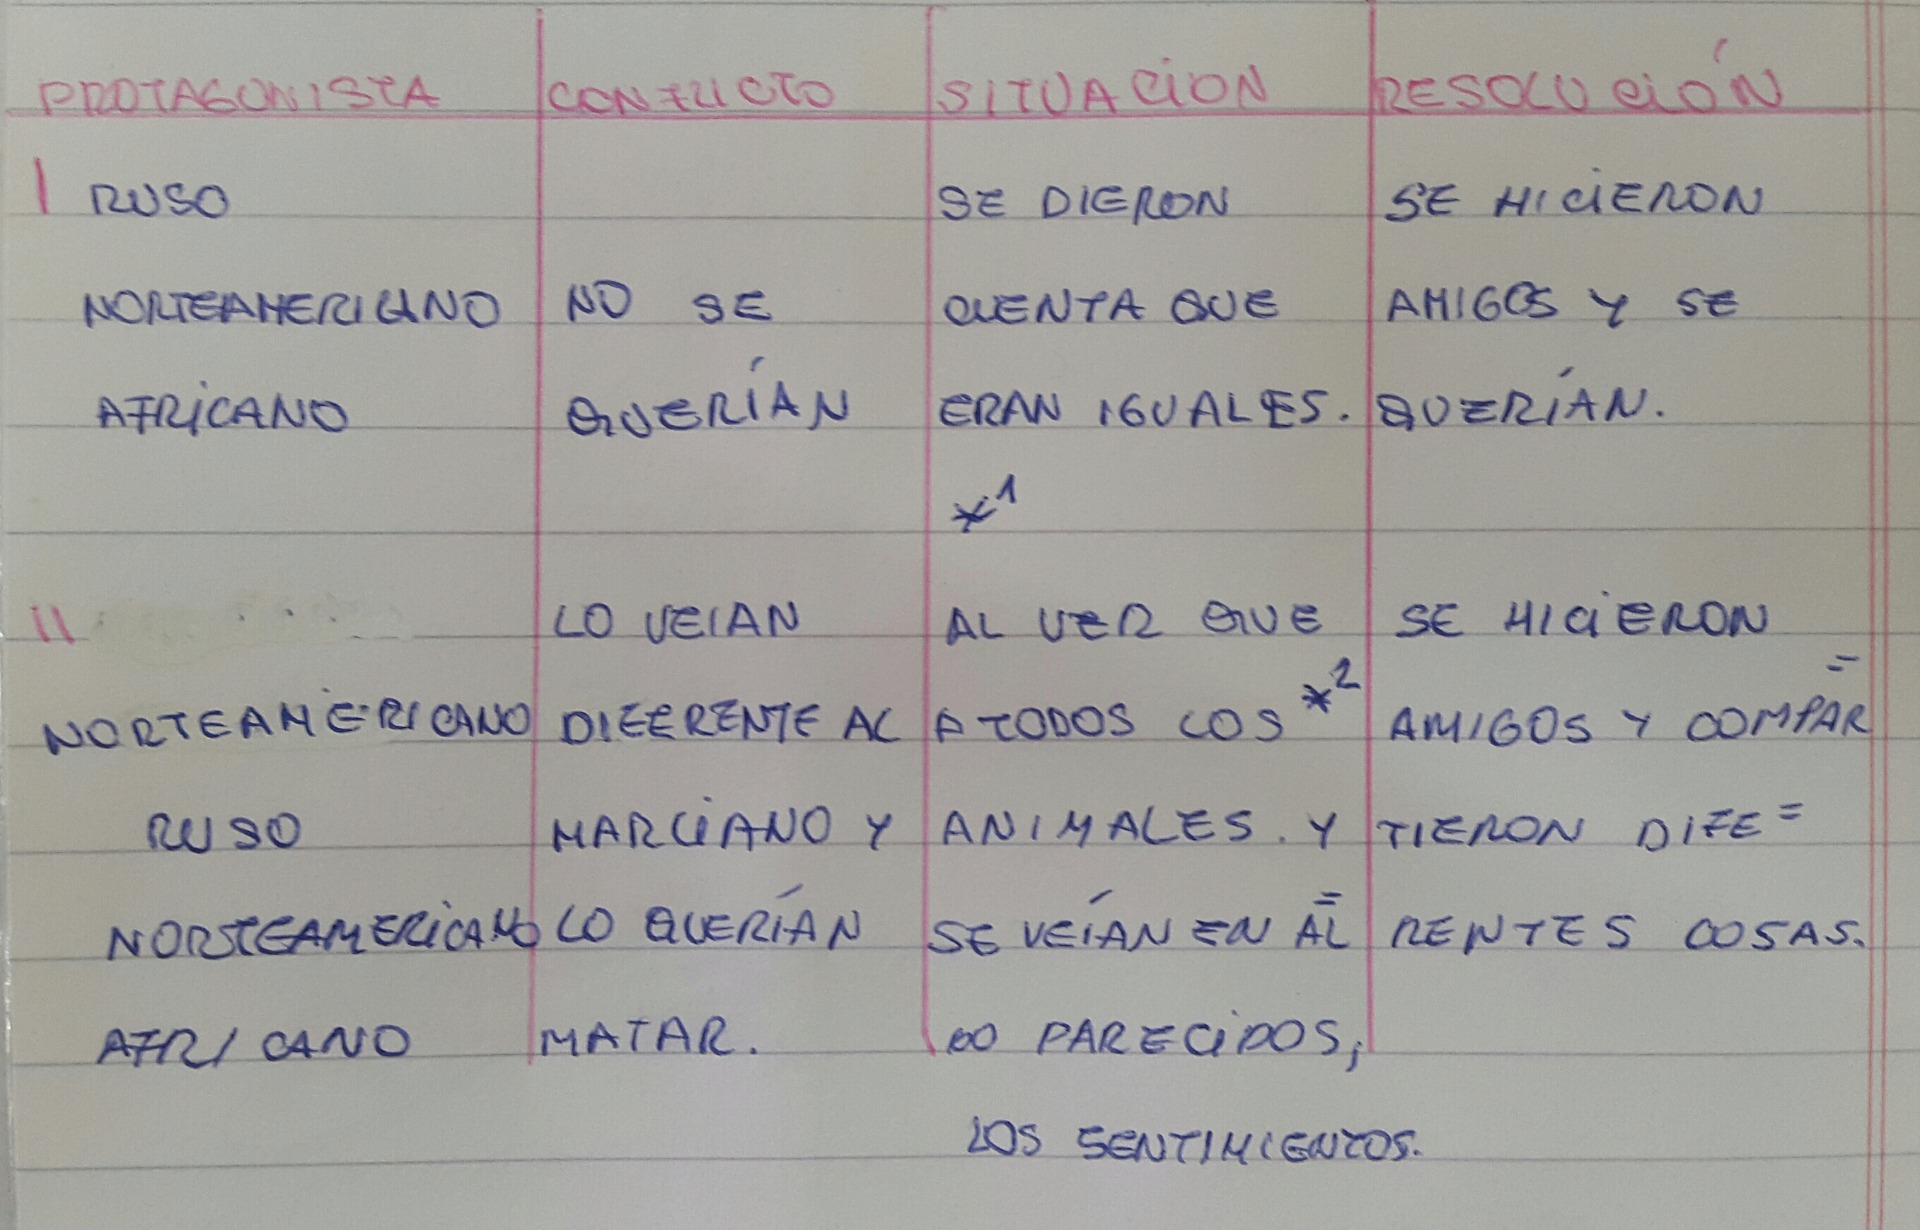 PROTAGONISTA CONFLICTO SITUACIÓN RESOLUCIÓN
I RUSO SE DIERON SE HICIERON
NORTEAMERICANO NO SE CUENTA QUE AMIGOS Y SE
AFRICANO QUERÍAN ERAN IGUALES. QUERÍAN.
*1
II LO VEIAN AL VER QUE SE HICIERON
NORTEAMERICANO DIFERENTE AL A TODOS LOS *2 AMIGOS Y COMPAR=
RUSO MARCIANO Y ANIMALES. Y TIERON DIFE=
NORTEAMERICANO LO QUERÍAN SE VEÍAN EN AL= RENTES COSAS.
AFRICANO MATAR. GO PARECIDOS,
LOS SENTIMIENTOS.